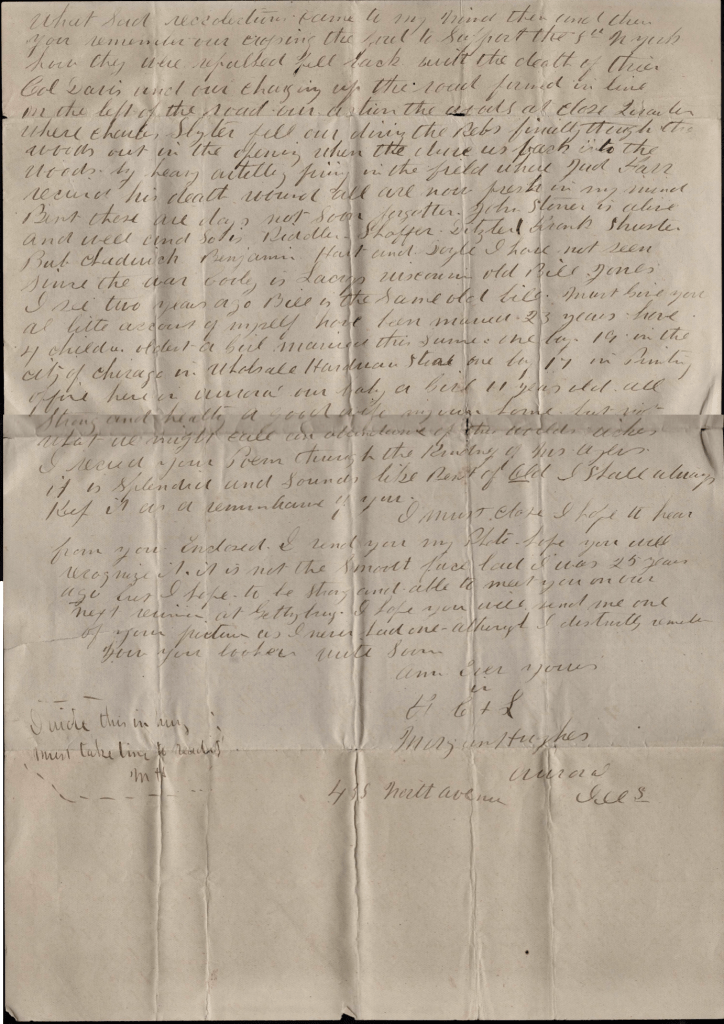 What sad recolections came to my mind then and there
you remember our crossing the            to Support the 5th N York
how they were repulsed fell back with the death of thier
Col Davis and our charging up the road formed in line
on the left of the road our action the woods at close Quarter
where Charles Slyter fell our driving the Rebs finally through the
woods out in the opening when the drove us back into the
Woods by heavy artillery firing in the field where Jud Farr
recived his death wound all are now fresh in my mind
But those are days not soon forgotten. John Stoner is alive
and well and so is Riddler Shaffer            Frank Shuster
But Chadwick Benjamin Hart and            I have not seen
since the war            is            old Bill Jones
I see two years ago Bill is the same old Bill. Must Give you
a little account of myself have been married 23 years have
4 children oldest a Girl married this summer one boy 19 in the
City of Chicago in Wholsale Hardware Store one boy 17 in Printing
office here in Aurora our baby a Girl 11 years old all
strong and healthy a good wife my own home but not
what we might call an abundance of this worlds riches
I recived your Poem through the Kindness of
it is Splendid and sounds like            of Old I Shall always
Keep it as a remembrance of you.
I must close I hope to hear
from you Enclosed I send you my Photo hope you will
recognize it. it is not the Smooth face lad I was 25 years
ago but I hope to be strong and able to meet you on our
next reunion at Gettysburg I hope you will send me one
of your picture as I never had one although I distinctly remember
how you looked write Soon
am Ever yours
in
F C & L
Morgan Hughes
Aurora
North Avenue Ills
I write this in
must take time to
MH